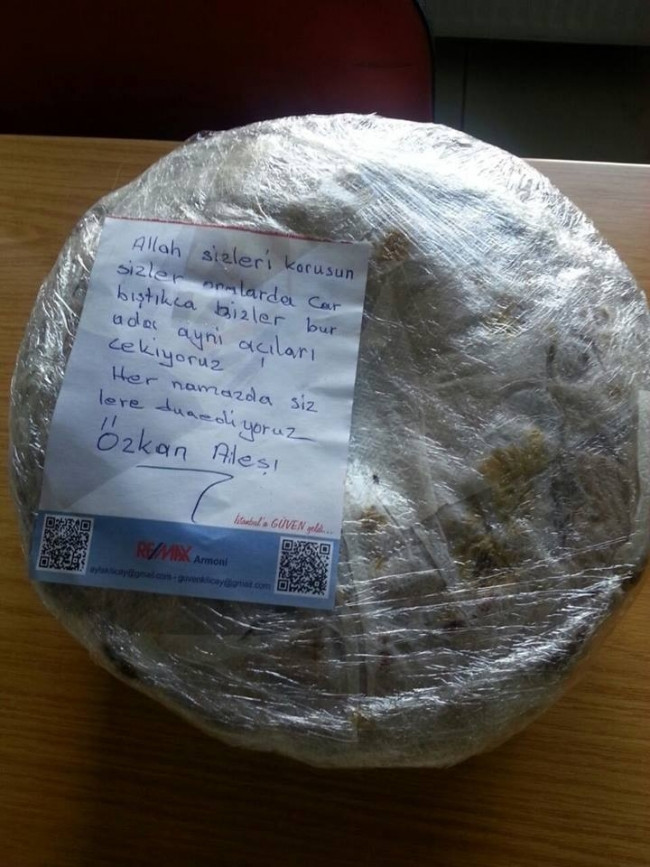 Allah sizleri korusun
sizler oralarda çar
bıştıkca bizler bur
ada ayni açıları
cekiyoruz !
Her namazda siz
lere duaediyoruz
Özkan Ailesı
İstanbul'a GÜVEN geldi...
RE/MAX Armoni